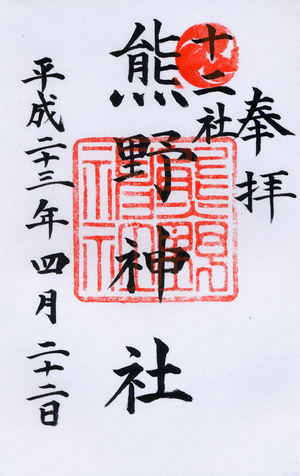 奉拝
十二社
熊野神社
平成二十三年四月二十二日
熊野神社